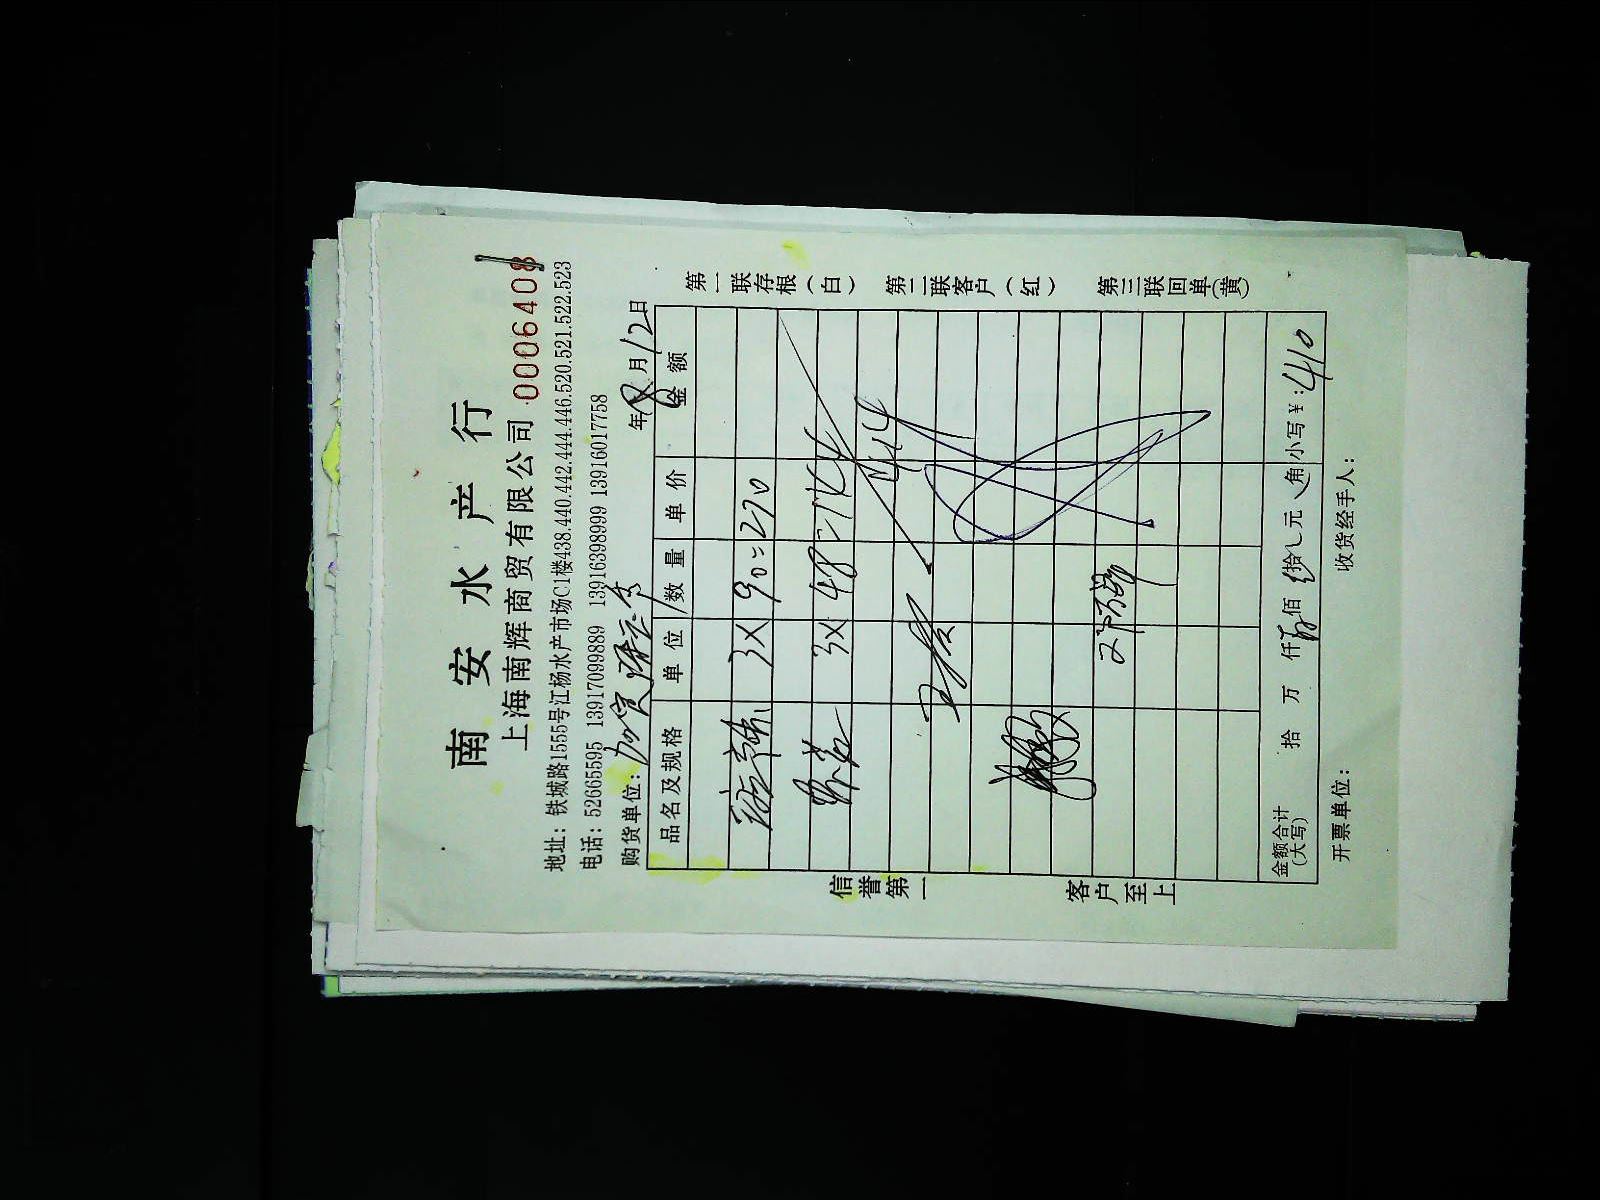 南安水产行
上海南辉商贸有限公司 0006408
地址：铁城路1555号江杨水产市场C1楼438.440.442.444.446.520.521.522.523
电话：52665595 13917099889 13916398999 13916017758
购货单位： 年 8 月 12 日
品名及规格 单位 数量 单价 金额
3X 90=270
3X 48=144
414
金额合计(大写) 拾 万 仟 佰 拾 元 角 小写￥：410
开票单位： 收货经手人：
信誉第一 客户至上
第一联存根（白） 第二联客户（红） 第三联回单（黄）